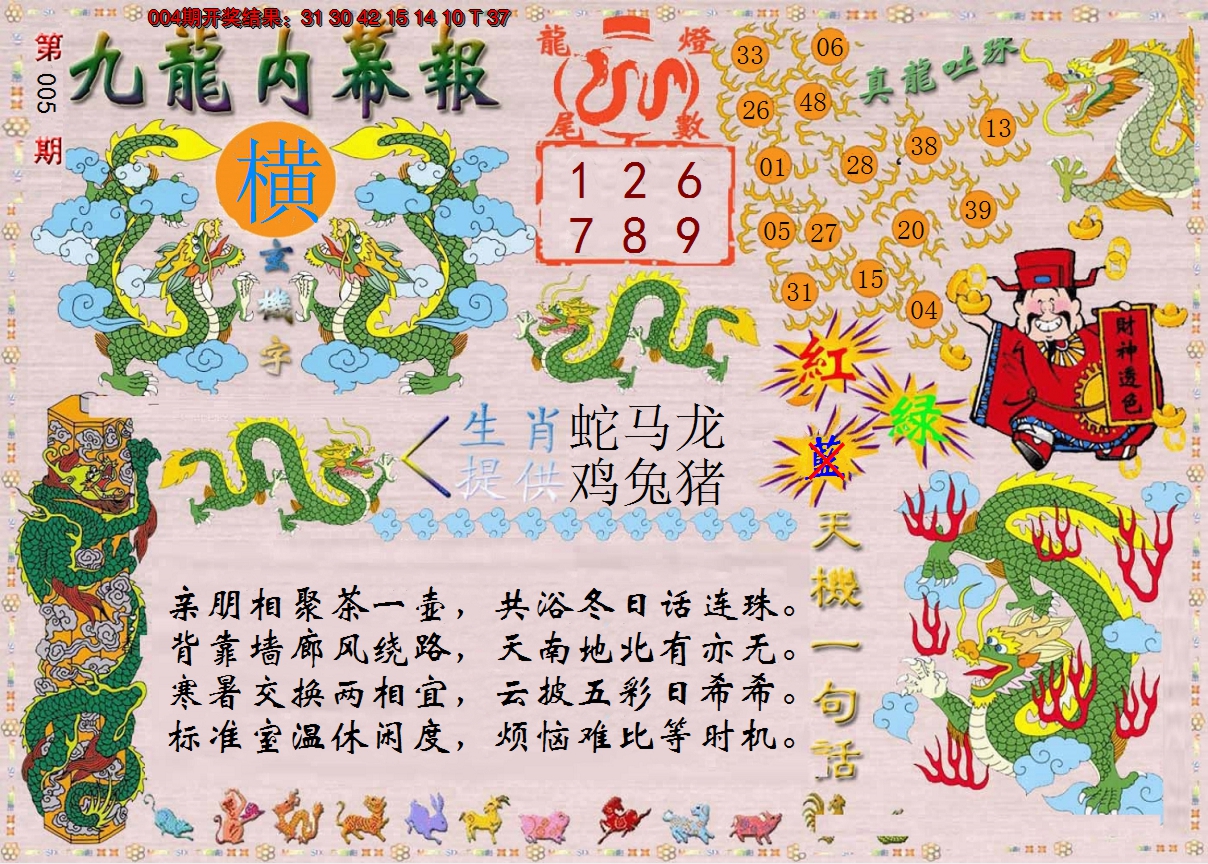 004期开奖结果：31 30 42 15 14 10 T 37
第005期
九龍内幕報
横
玄機字
龍燈
尾數
1 2 6
7 8 9
真龍吐珠
33 06
26 48
01 28 38 13
05 27 20 39
31 15 04
財神透色
紅
綠
藍
生肖 蛇马龙
提供 鸡兔猪
亲朋相聚茶一壶，共浴冬日话连珠。
背靠墙廊风绕路，天南地北有亦无。
寒暑交换两相宜，云披五彩日希希。
标准室温休闲度，烦恼难比等时机。
天機一句話